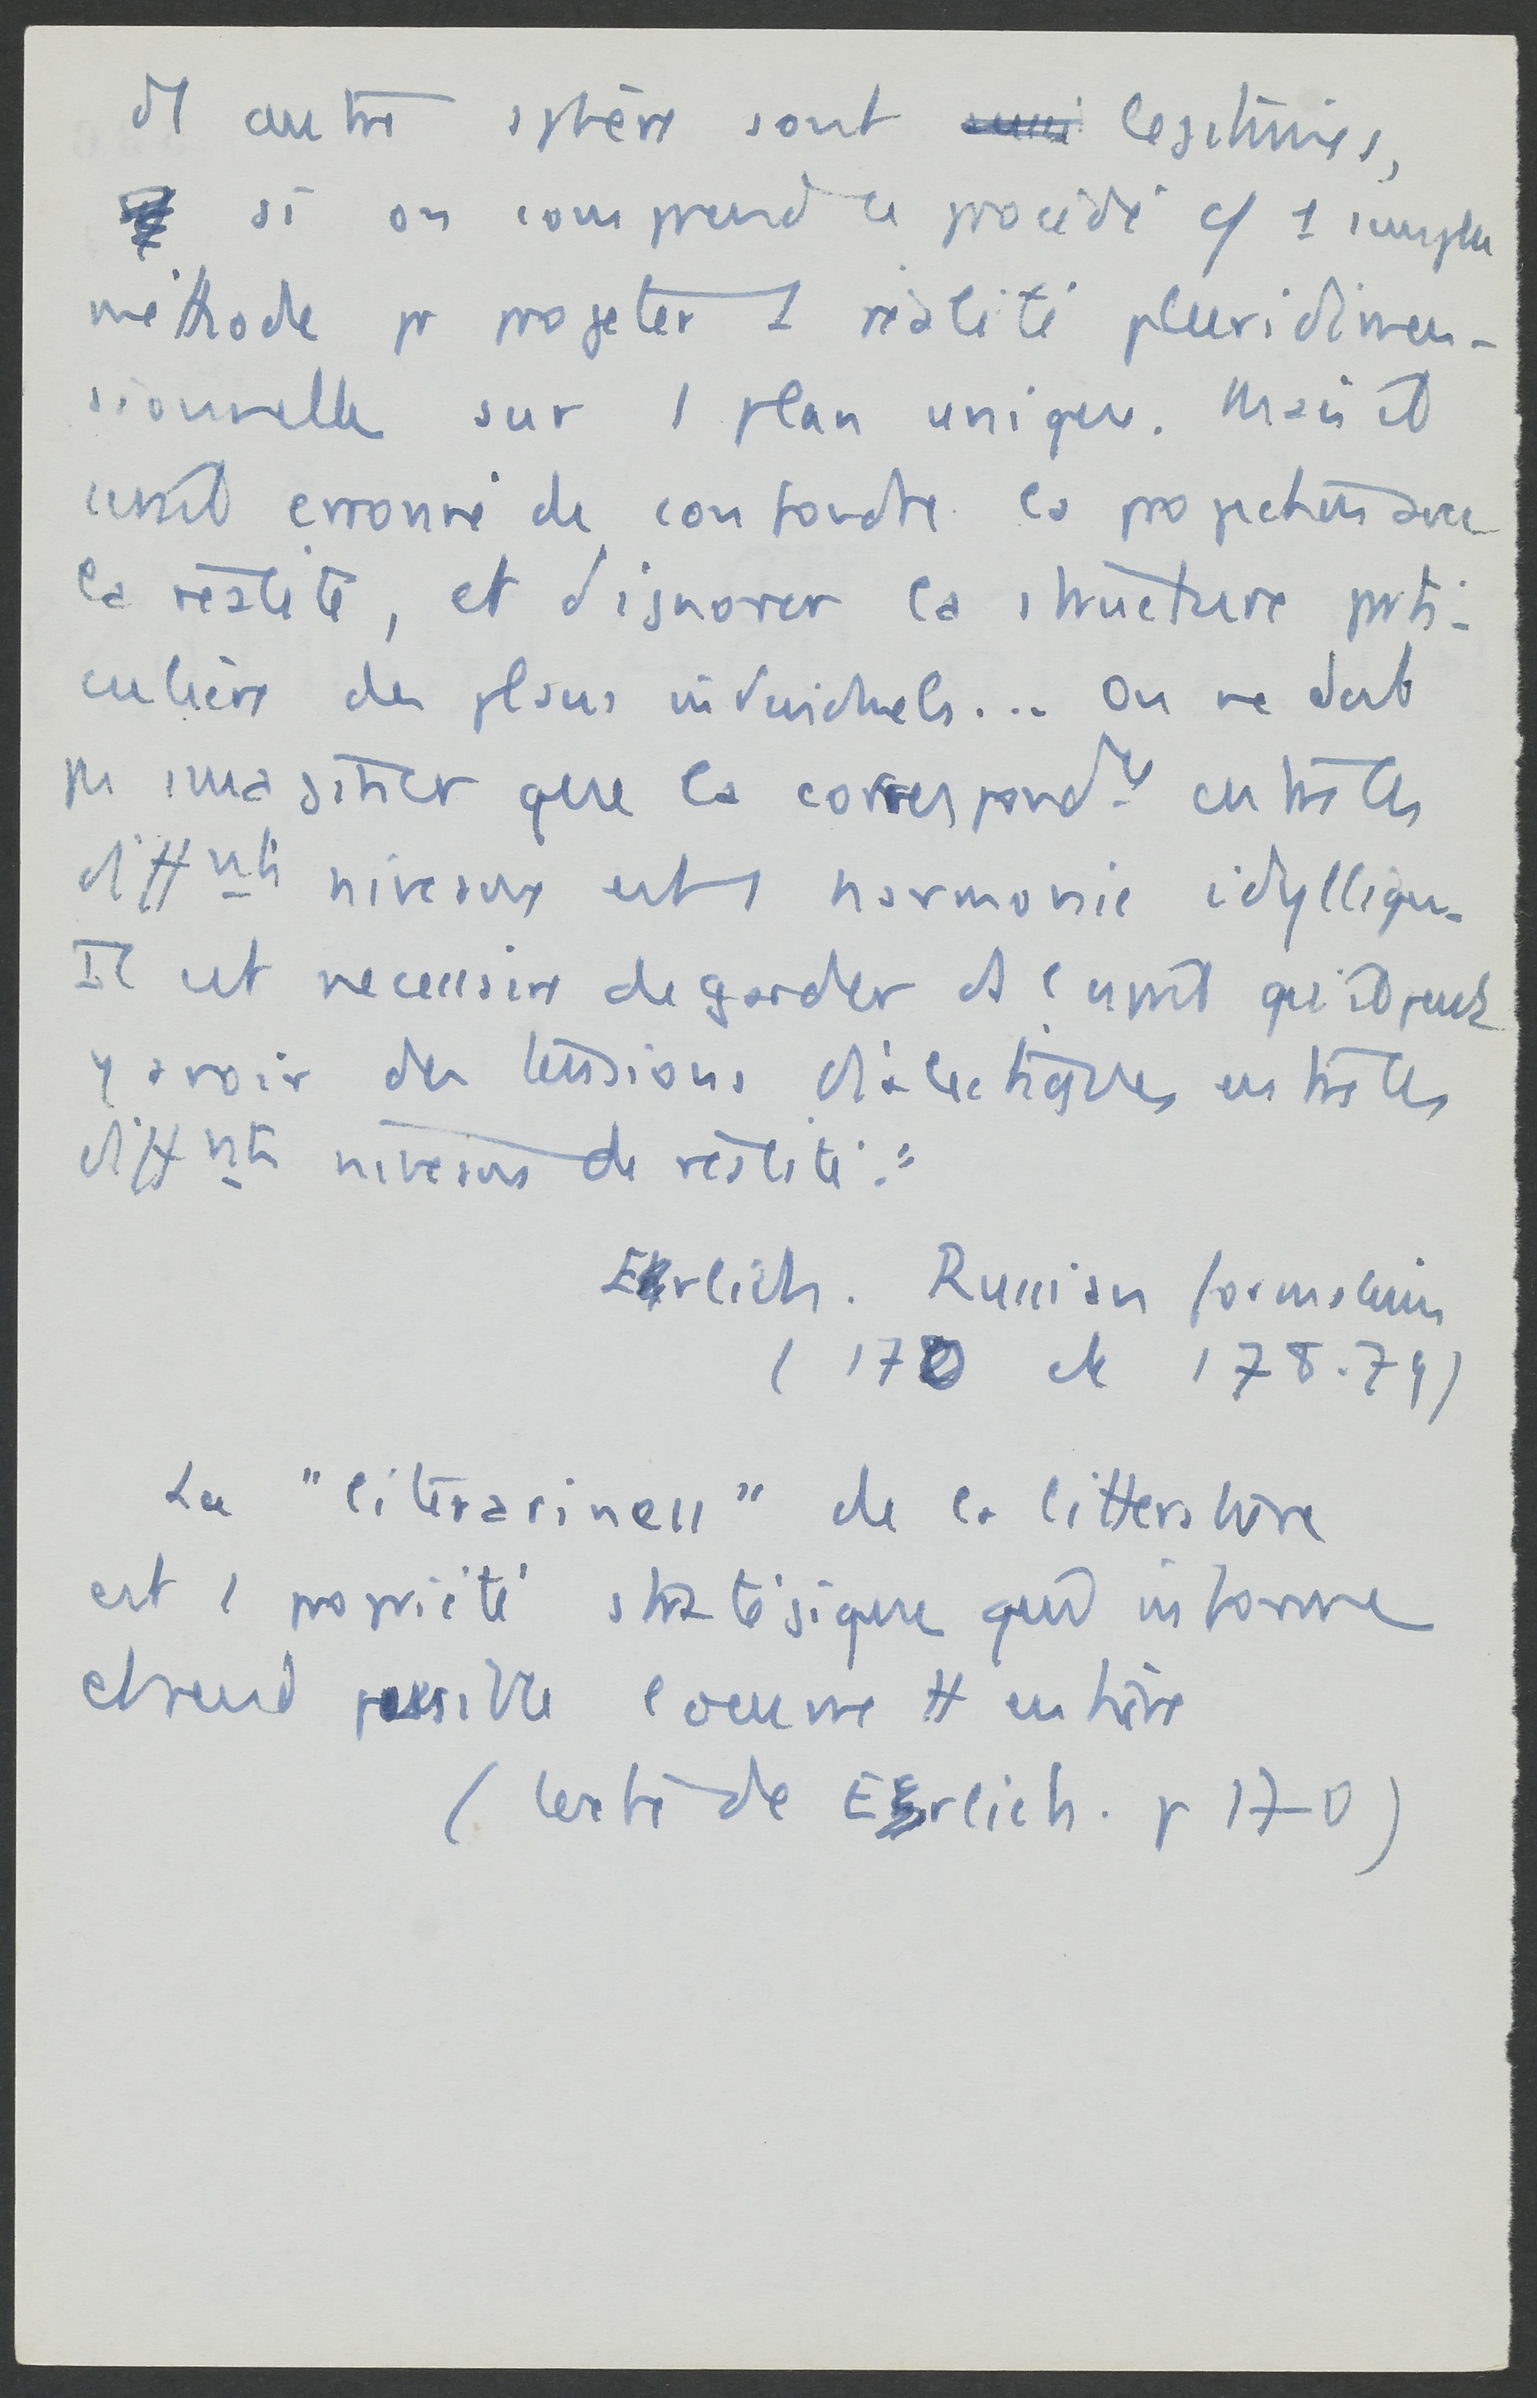 autre sphère sont légitimes,
si on comprend ce procédé c/ 1 simple
méthode pr projeter 1 réalité pluridimen-
sionnelle sur 1 plan unique. Mais il
serait erroné de confondre la projection avec
la réalité, et d'ignorer la structure prti-
culière des plans individuels... On ne doit
ps imaginer que la correspondce entre les
diffnts niveaux est 1 harmonie idyllique.
Il est necessaire de garder ds l'esprit qu'il peut
y avoir des tensions dialectiques entre les
diffnts niveaux de réalité."
Erlich. Russian formalism
(170 et 178-79)
La "literariness" de la litterature
est 1 propriété stratégique qui informe
et rend possible l'oeuvre tt entière
(texte de Erlich. p 170)